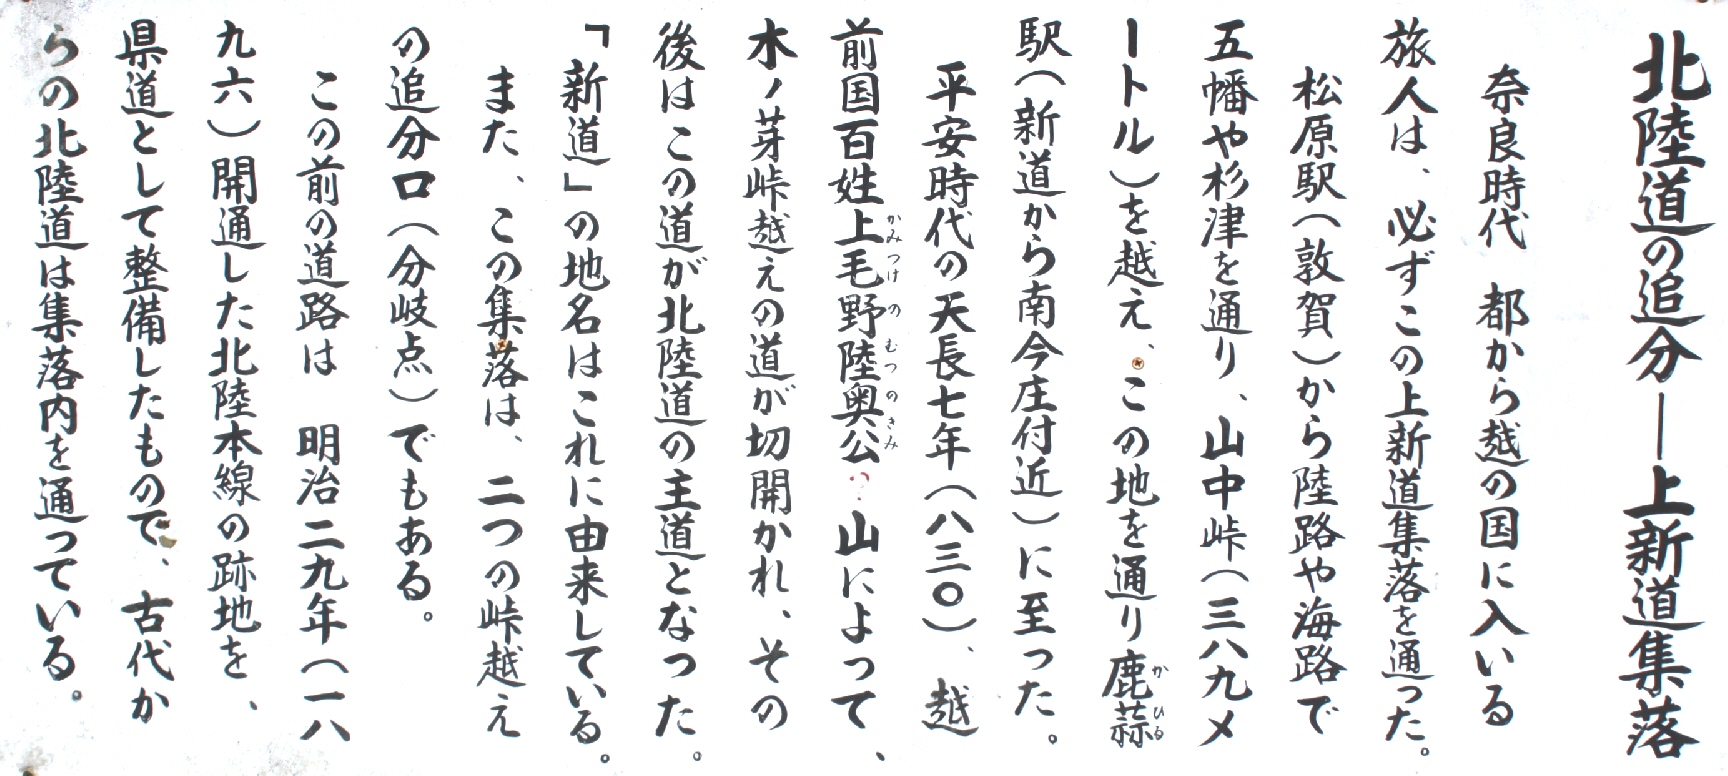 北陸道の追分―上新道集落
奈良時代　都から越の国に入いる
旅人は、必ずこの上新道集落を通った。
松原駅（敦賀）から陸路や海路で
五幡や杉津を通り、山中峠（三八九メ
ートル）を越え、この地を通り鹿蒜
駅（新道から南今庄付近）に至った。
平安時代の天長七年（八三〇）、越
前国百姓上毛野陸奥公？山によって、
木ノ芽峠越えの道が切開かれ、その
後はこの道が北陸道の主道となった。
「新道」の地名はこれに由来している。
また、この集落は、二つの峠越え
の追分口（分岐点）でもある。
この前の道路は　明治二九年（一八
九六）開通した北陸本線の跡地を、
県道として整備したもので、古代か
らの北陸道は集落内を通っている。
かひる
かみつけのむつのきみ